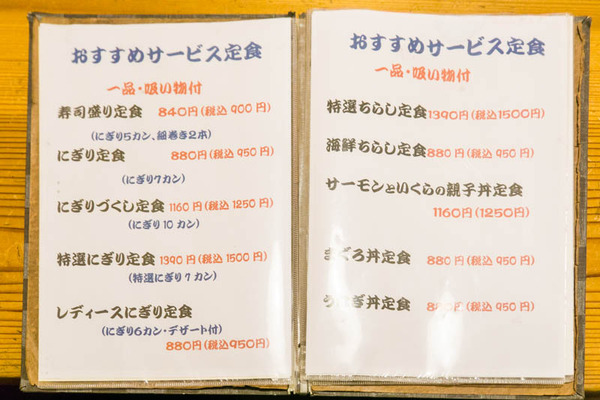 おすすめサービス定食
一品・吸い物付
寿司盛り定食 840円(税込 900円)
(にぎり5カン、細巻き2本)
にぎり定食 880円(税込 950円)
(にぎり7カン)
にぎりづくし定食 1160円(税込 1250円)
(にぎり10カン)
特選にぎり定食 1390円(税込 1500円)
(特選にぎり7カン)
レディースにぎり定食
(にぎり6カン・デザート付)
880円(税込950円)
おすすめサービス定食
一品・吸い物付
特選ちらし定食1390円(税込1500円)
海鮮ちらし定食880円(税込 950円)
サーモンといくらの親子丼定食
1160円(1250円)
まぐろ丼定食 880円(税込 950円)
うなぎ丼定食 880円(税込 950円)